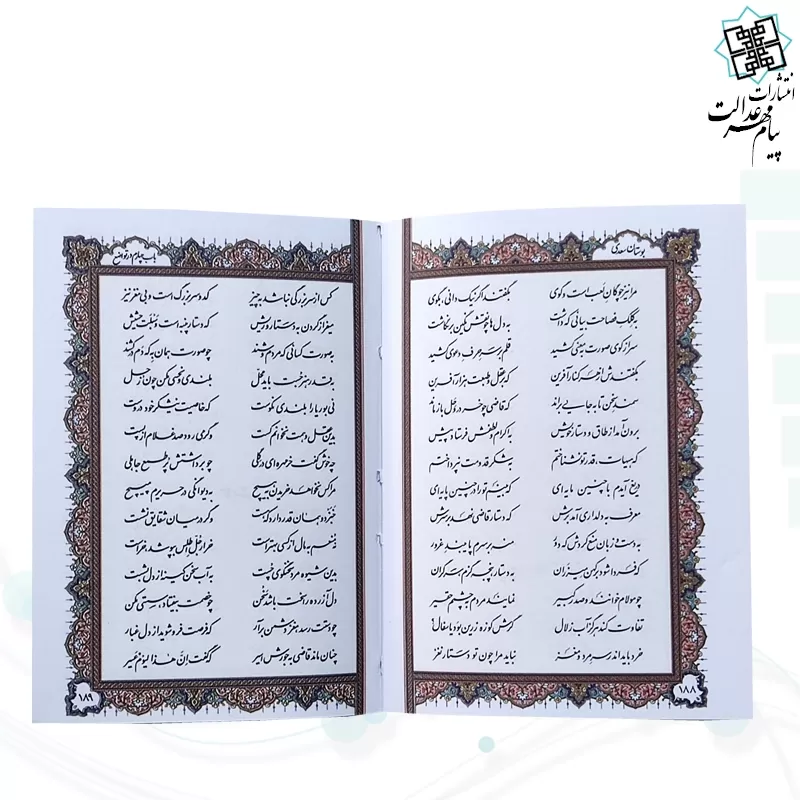 انتشارات
پیام مهر عدالت
بوستان سعدی
مرا نیز چوگان لعب است و گوی بگفتند اگر نیک دانی، بگوی
به کلک فصاحت بیانی که داشت به دل‌ها چو نقش نگین برنگاشت
سر از کوی صورت به معنی کشید قلم بر سر حرف دعوی کشید
بگفتندش از هر کنار آفرین که بر عقل و طبعت هزار آفرین
سمند سخن تا به جایی براند که قاضی چو خر در وحل بازماند
برون آمد از طاق و دستار خویش به اکرام و لطفش فرستاد پیش
که هیهات، قدر تو نشناختم به شکر قدومت نپرداختم
دریغ آیدم با چنین مایه‌ای که بینم تو را در چنین پایه‌ای
معرف به دلداری آمد برش که دستار قاضی نهد بر سرش
به دست و زبان منع کردش که دور منه بر سرم پایبند غرور
که فردا شود بر کهن میزران به دستار پنجه گزم سرگران
چو مولام خوانند و صدر کبیر نمایند مردم به چشمم حقیر
تفاوت کند هرگز آب زلال گرش کوزه زرین بود یا سفال؟
خرد باید اندر سر مرد و مغز نباید مرا چون تو دستار نغز
۱۸۸
باب چهارم در تواضع
کس از سر بزرگی نباشد به چیز کدو سر بزرگ است و بی مغز نیز
میفراز گردن به دستار و ریش که دستار پنبه است و سبلت حشیش
به صورت کسانی که مردم وشند چو صورت همان به که دم درکشند
به قدر هنر جست باید محل بلندی و نحسی مکن چون زحل
نی بوریا را بلندی نکوست که خاصیت نیشکر خود در اوست
بدین عقل و همت نخوانم کست وگر می رود صد غلام از پست
چه خوش گفت خرمهره ای در گلی چو برداشتش پر طمع جاهلی
مرا کس نخواهد خریدن به هیچ به دیوانگی در حریرم مپیچ
خبزدو همان قدر دارد که هست وگر در میان شقایق نشست
نه منعم به مال از کسی بهتر است خر ار جل اطلس بپوشد خر است
بدین شیوه مرد سخنگوی چست به آب سخن کینه از دل بشست
دل آزرده را سخت باشد سخن چو خصمت بیفتاد سستی مکن
چو دستت رسد مغز دشمن برآر که فرصت فرو شوید از دل غبار
چنان ماند قاضی به جورش اسیر که گفت اِنَّ هذا لیوم عسیر
۱۸۹